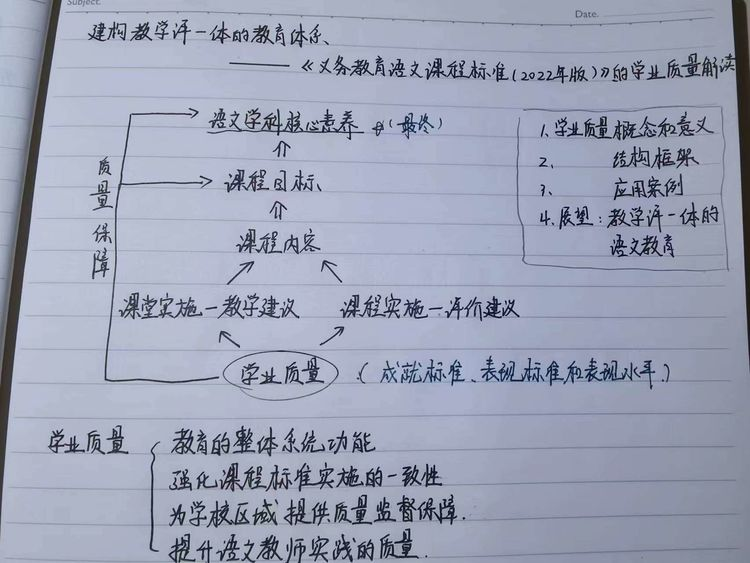 Subject.
Date.
建构教学评一体的教育体系、
——《义务教育语文课程标准(2022年版)》的学业质量解读
语文学科核心素养 (最终)
课程目标、
课程内容
课堂实施—教学建议 课程实施—评价建议
学业质量 (成就标准、表现标准和表现水平.)
质量保障
1.学业质量概念和意义
2. 结构框架
3. 应用案例
4.展望:教学评一体的
语文教育
学业质量 教育的整体系统功能
强化课程标准实施的一致性
为学校区域提供质量监督保障.
提升语文教师实践的质量.